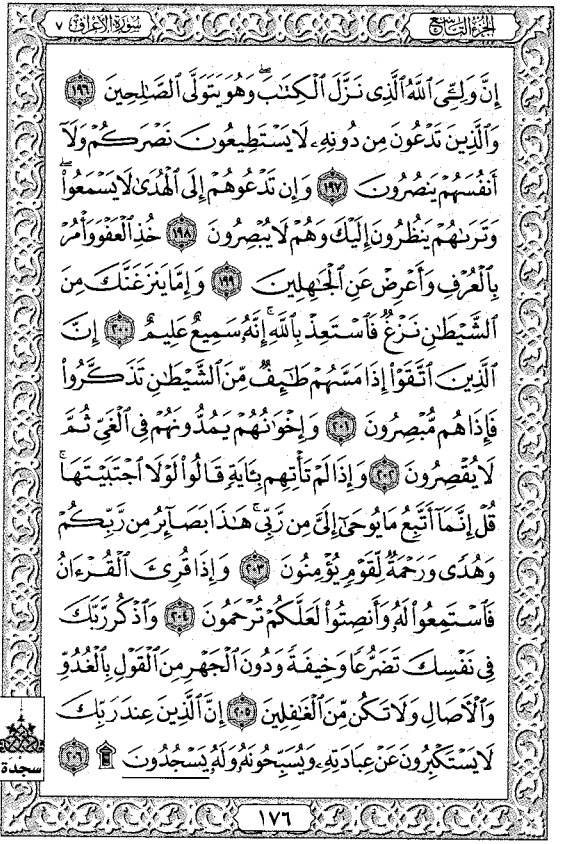 سُورَةُ الأَعْرَافِ ٧
الجُزْءُ التَّاسِعُ
إِنَّ وَلِـِّۧيَ ٱللَّهُ ٱلَّذِي نَزَّلَ ٱلْكِتَٰبَۖ وَهُوَ يَتَوَلَّى ٱلصَّٰلِحِينَ ١٩٦
وَٱلَّذِينَ تَدْعُونَ مِن دُونِهِۦ لَا يَسْتَطِيعُونَ نَصْرَكُمْ وَلَآ
أَنفُسَهُمْ يَنصُرُونَ ١٩٧ وَإِن تَدْعُوهُمْ إِلَى ٱلْهُدَىٰ لَا يَسْمَعُوا۟ۖ
وَتَرَىٰهُمْ يَنظُرُونَ إِلَيْكَ وَهُمْ لَا يُبْصِرُونَ ١٩٨ خُذِ ٱلْعَفْوَ وَأْمُرْ
بِٱلْعُرْفِ وَأَعْرِضْ عَنِ ٱلْجَٰهِلِينَ ١٩٩ وَإِمَّا يَنزَغَنَّكَ مِنَ
ٱلشَّيْطَٰنِ نَزْغٌ فَٱسْتَعِذْ بِٱللَّهِۚ إِنَّهُۥ سَمِيعٌ عَلِيمٌ ٢٠٠ إِنَّ
ٱلَّذِينَ ٱتَّقَوْا۟ إِذَا مَسَّهُمْ طَٰٓئِفٌ مِّنَ ٱلشَّيْطَٰنِ تَذَكَّرُوا۟
فَإِذَا هُم مُّبْصِرُونَ ٢٠١ وَإِخْوَٰنُهُمْ يَمُدُّونَهُمْ فِي ٱلْغَيِّ ثُمَّ
لَا يُقْصِرُونَ ٢٠٢ وَإِذَا لَمْ تَأْتِهِم بِـَٔايَةٍ قَالُوا۟ لَوْلَا ٱجْتَبَيْتَهَاۚ
قُلْ إِنَّمَآ أَتَّبِعُ مَا يُوحَىٰٓ إِلَيَّ مِن رَّبِّيۚ هَٰذَا بَصَآئِرُ مِن رَّبِّكُمْ
وَهُدًى وَرَحْمَةٌ لِّقَوْمٍ يُؤْمِنُونَ ٢٠٣ وَإِذَا قُرِئَ ٱلْقُرْءَانُ
فَٱسْتَمِعُوا۟ لَهُۥ وَأَنصِتُوا۟ لَعَلَّكُمْ تُرْحَمُونَ ٢٠٤ وَٱذْكُر رَّبَّكَ
فِي نَفْسِكَ تَضَرُّعًا وَخِيفَةً وَدُونَ ٱلْجَهْرِ مِنَ ٱلْقَوْلِ بِٱلْغُدُوِّ
وَٱلْءَاصَالِ وَلَا تَكُن مِّنَ ٱلْغَٰفِلِينَ ٢٠٥ إِنَّ ٱلَّذِينَ عِندَ رَبِّكَ
لَا يَسْتَكْبِرُونَ عَنْ عِبَادَتِهِۦ وَيُسَبِّحُونَهُۥ وَلَهُۥ يَسْجُدُونَ ۩ ٢٠٦
سجدة
١٧٦